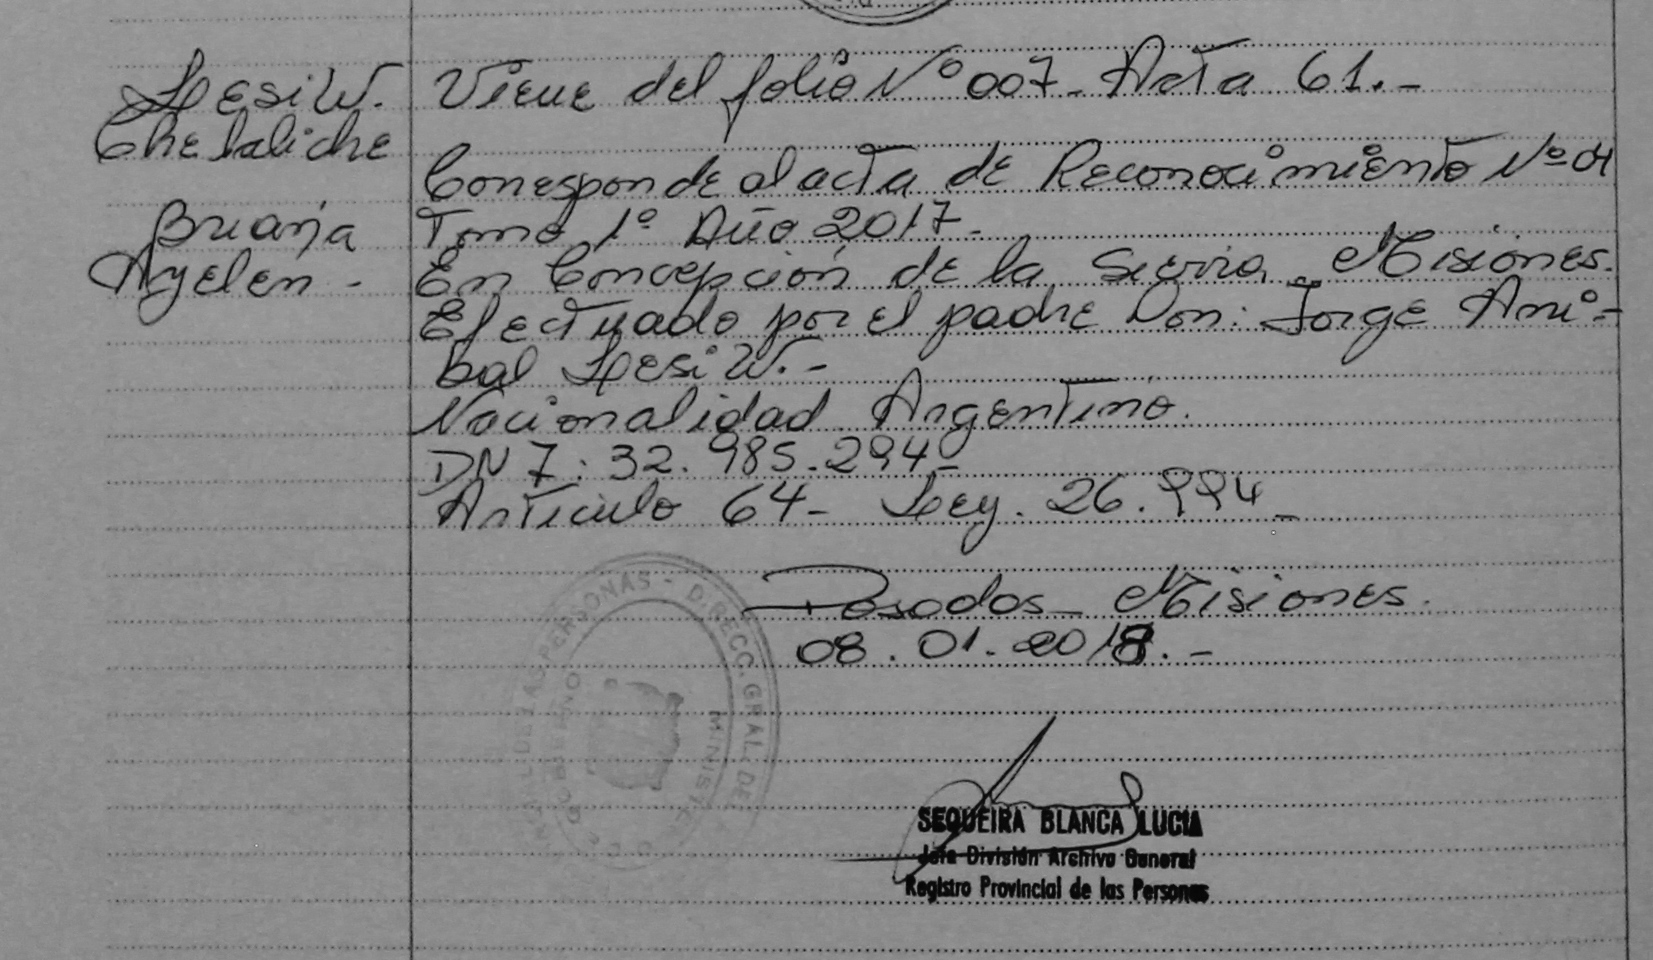 LesiW.
Chepaliche
Briana
Ayelén.-
Viene del folio Nº 007- Acta 61.-
Corresponde al acta de Reconocimiento Nº 04
Tomo 1º Año 2017-
En Concepción de la Sierra - Misiones.
Efectuado por el padre Don: Jorge Ani-
bal LesiW.-
Nacionalidad Argentino.
DNI: 32.985.294-
Artículo 64- Ley. 26.994-
Posadas- Misiones.
08.01.2018.-
DIRECC. GRAL. DE
DE LAS PERSONAS -
GOBIERNO
SEQUEIRA BLANCA LUCIA
Jefe División Archivo General
Registro Provincial de las Personas